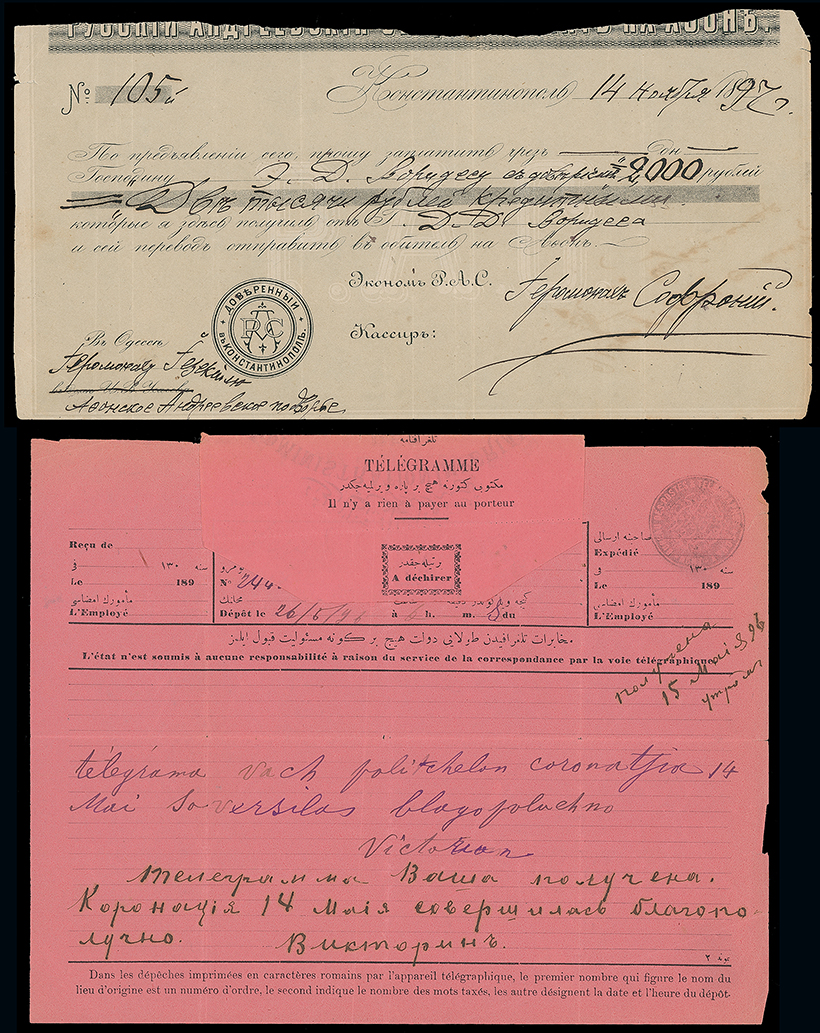 РУССКІЙ АНДРЕЕВСКІЙ НА АѲОНѢ.
№: 105й
Константинополь 14 ноября 1897 г.
По предъявленіи сего, прошу заплатить чрезъ Дон
Господину Э. Д. 2,000 рублей
Двѣ тысячи рублей кредитными
которые я здѣсь получилъ отъ Г. Д. Д.
и сей переводъ отправить въ обитель на Аѳон.
Экономъ Р.А.С. Іеромонахъ Софроній.
Кассиръ:
ДОВѢРЕННЫЙ
ВЪ КОНСТАНТИНОПОЛѢ.
РАС
Въ Одессѣ
Іеромонаху
Аѳонское Андреевское подворье
تلغرافنامه
TÉLÉGRAMME
Il n'y a rien à payer au porteur
Reçu de
في سنه ١٣٠
Le 189
مأمورك امضاسی
L'Employé
№ 244
Dépôt le 26/5/96 à h. m. du
A déchirer
Expédié
في سنه ١٣٠
Le 189
مأمورك امضاسی
L'Employé
مخابرات تلغرافيدن طولايی دولت هيچ بر كونه مسئوليت قبول ايلمز
L'état n'est soumis à aucune responsabilité à raison du service de la correspondance par la voie télégraphique.
получена
15 Маія 96
утромъ
télégrama vach politchelon coronatjia 14
Mai soversilas blagopoluchno
Victorian
Телеграмма Ваша получена.
Коронація 14 Маія совершилась благопо-
лучно. Викторинъ.
Dans les dépêches imprimées en caractères romains par l'appareil télégraphique, le premier nombre qui figure le nom du
lieu d'origine est un numéro d'ordre, le second indique le nombre des mots taxés, les autre désignent la date et l'heure du dépôt.